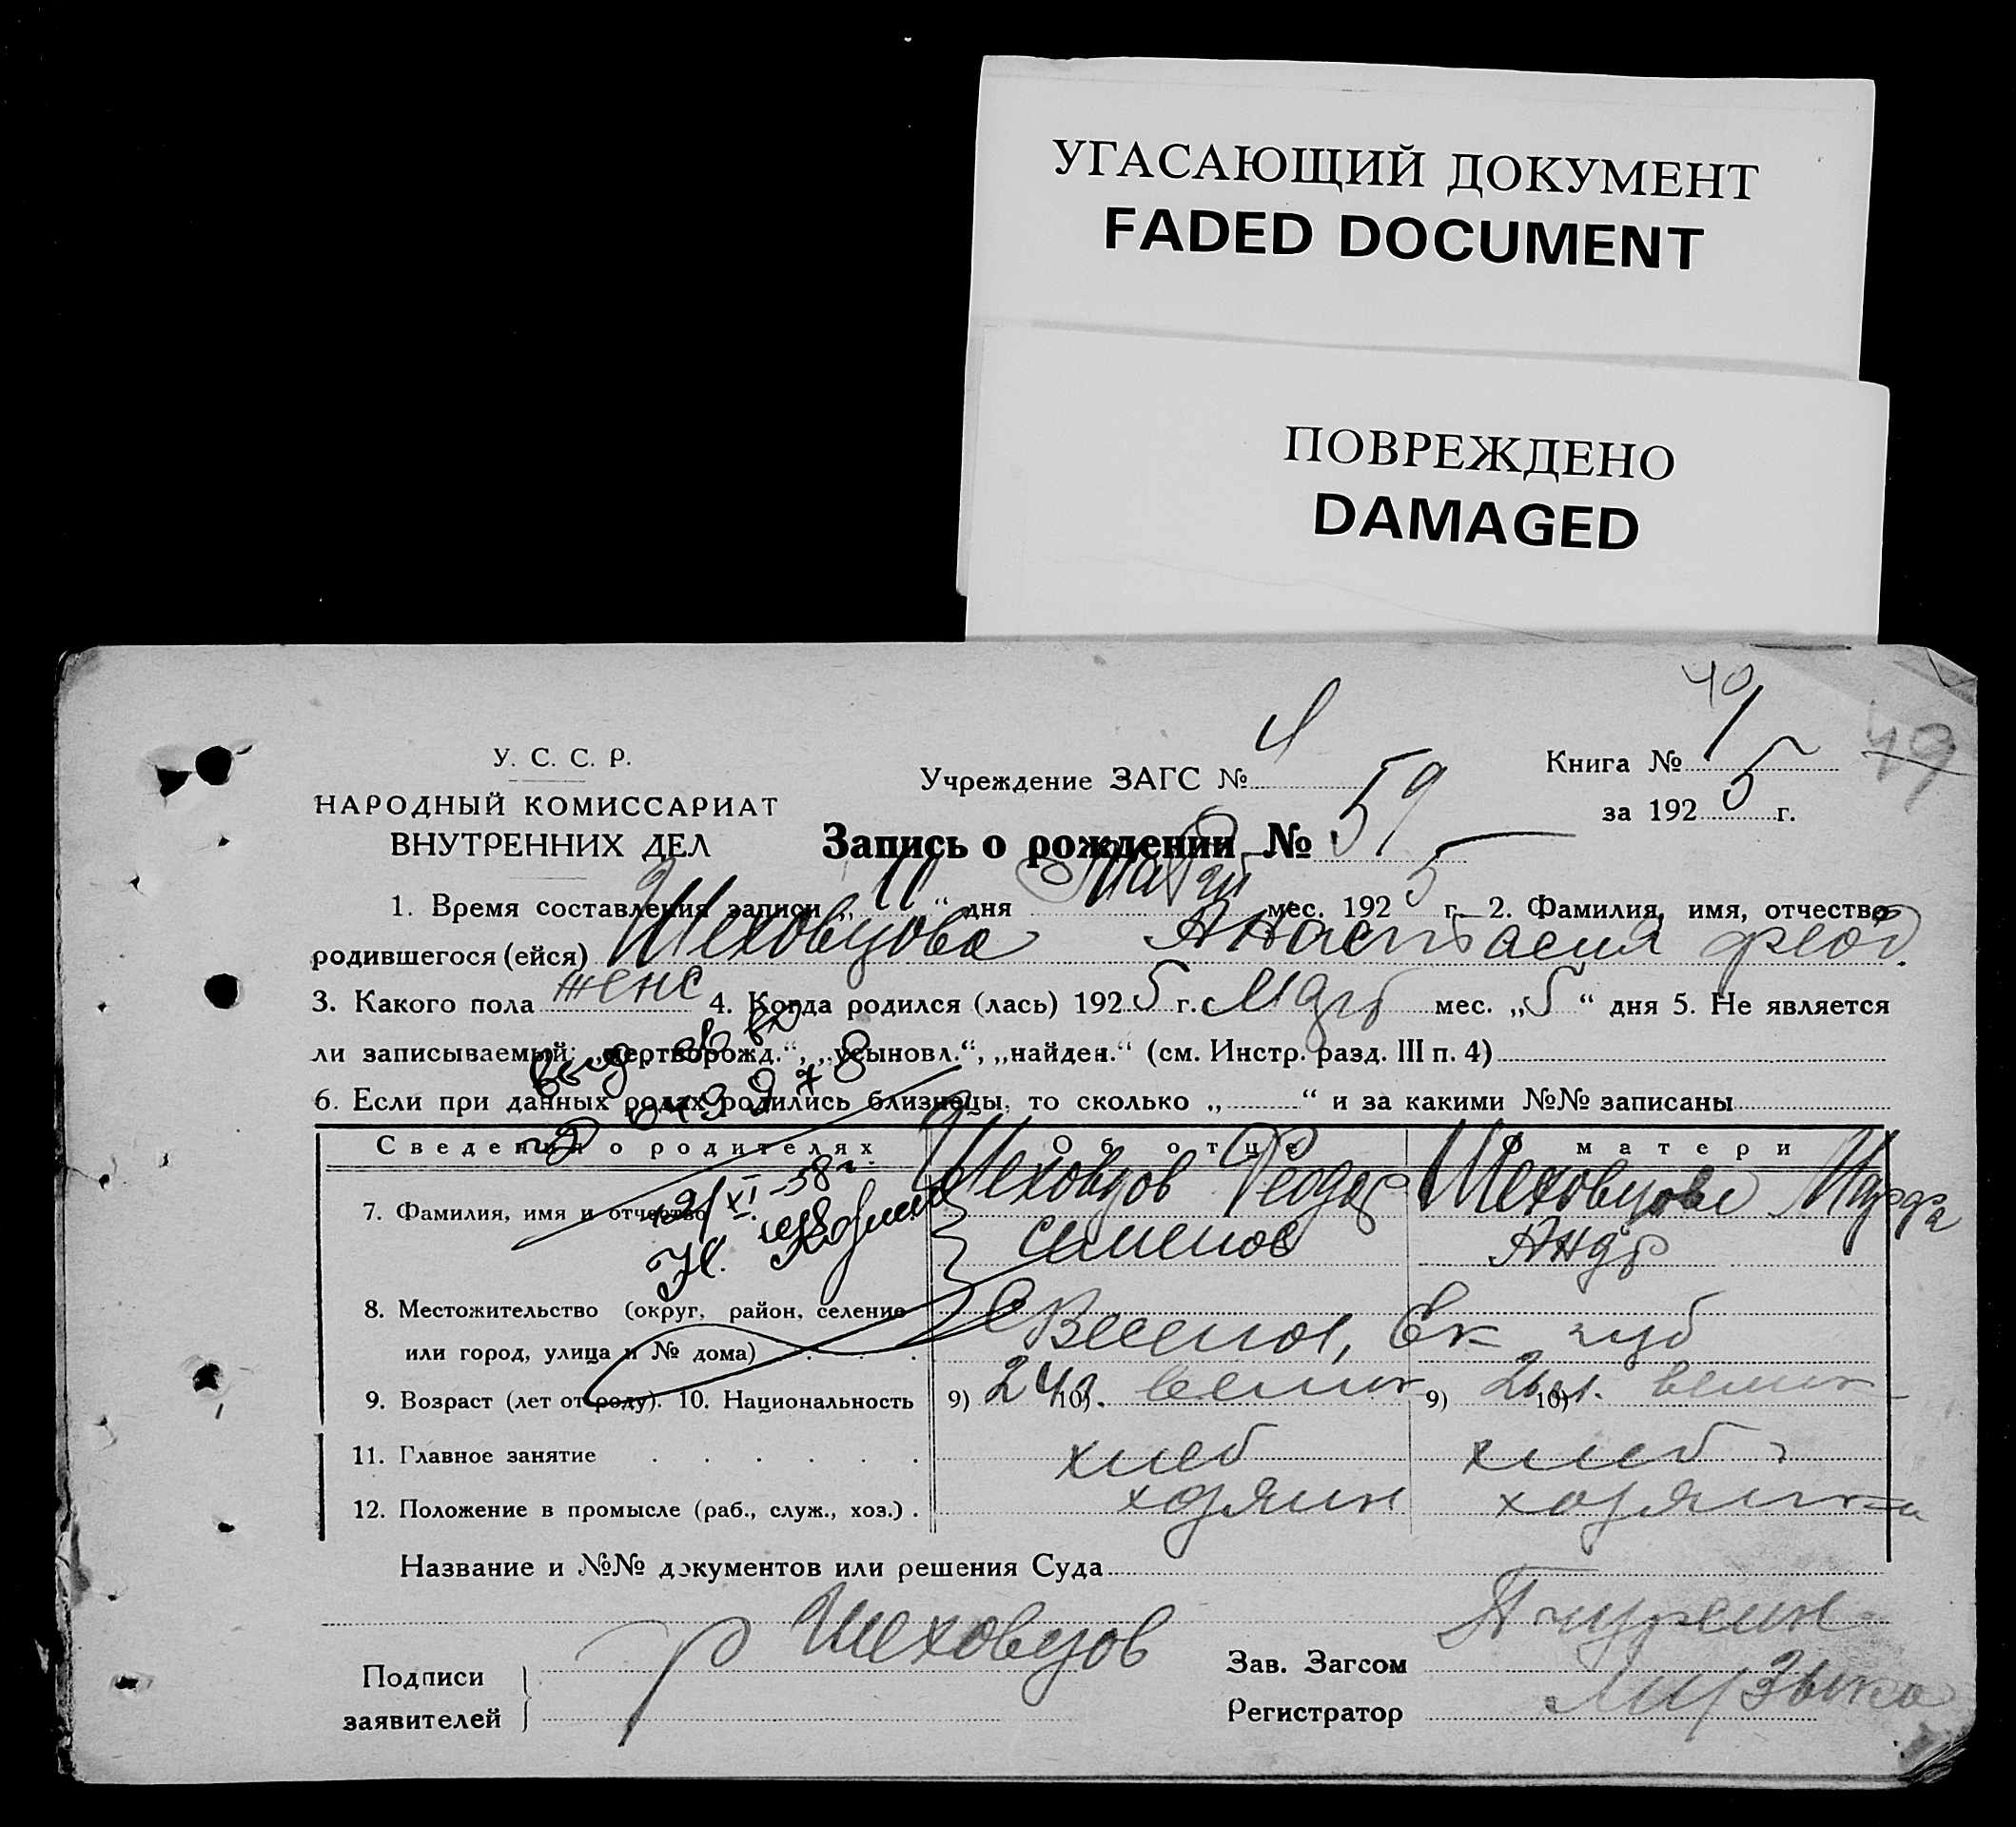 УГАСАЮЩИЙ ДОКУМЕНТ
FADED DOCUMENT
ПОВРЕЖДЕНО
DAMAGED
40
49
У. С. С. Р.
НАРОДНЫЙ КОМИССАРИАТ
ВНУТРЕННИХ ДЕЛ
Учреждение ЗАГС №
Книга № 1
за 1925 г.
Запись о рождении № 59
1. Время составления записи „11“ дня Марта мес. 1925 г. 2. Фамилия, имя, отчество
родившегося (ейся) Шеховцова Анастасия Феод.
3. Какого пола женс 4. Когда родился (лась) 1925 г. Мар мес. „5“ дня 5. Не является
ли записываемый: „мертворожд.“, „усыновл.“, „найден.“ (см. Инстр. разд. III п. 4)
6. Если при данных родах родились близнецы, то сколько „ “ и за какими №№ записаны
Сведения о родителях Об отце О матери
7. Фамилия, имя и отчество Шеховцов Феодор Шеховцова Марфа
Семенов Андр
21/XI-58 г.
8. Местожительство (округ, район, селение
или город, улица и № дома) С Веселое, Ек губ
9. Возраст (лет от роду). 10. Национальность 9) 24 л. 10) велик 9) 10) велик
11. Главное занятие хлеб хлеб
12. Положение в промысле (раб., служ., хоз.) хозяин хозяйка
Название и №№ документов или решения Суда
Подписи
заявителей Ф Шеховцов
Зав. Загсом
Регистратор